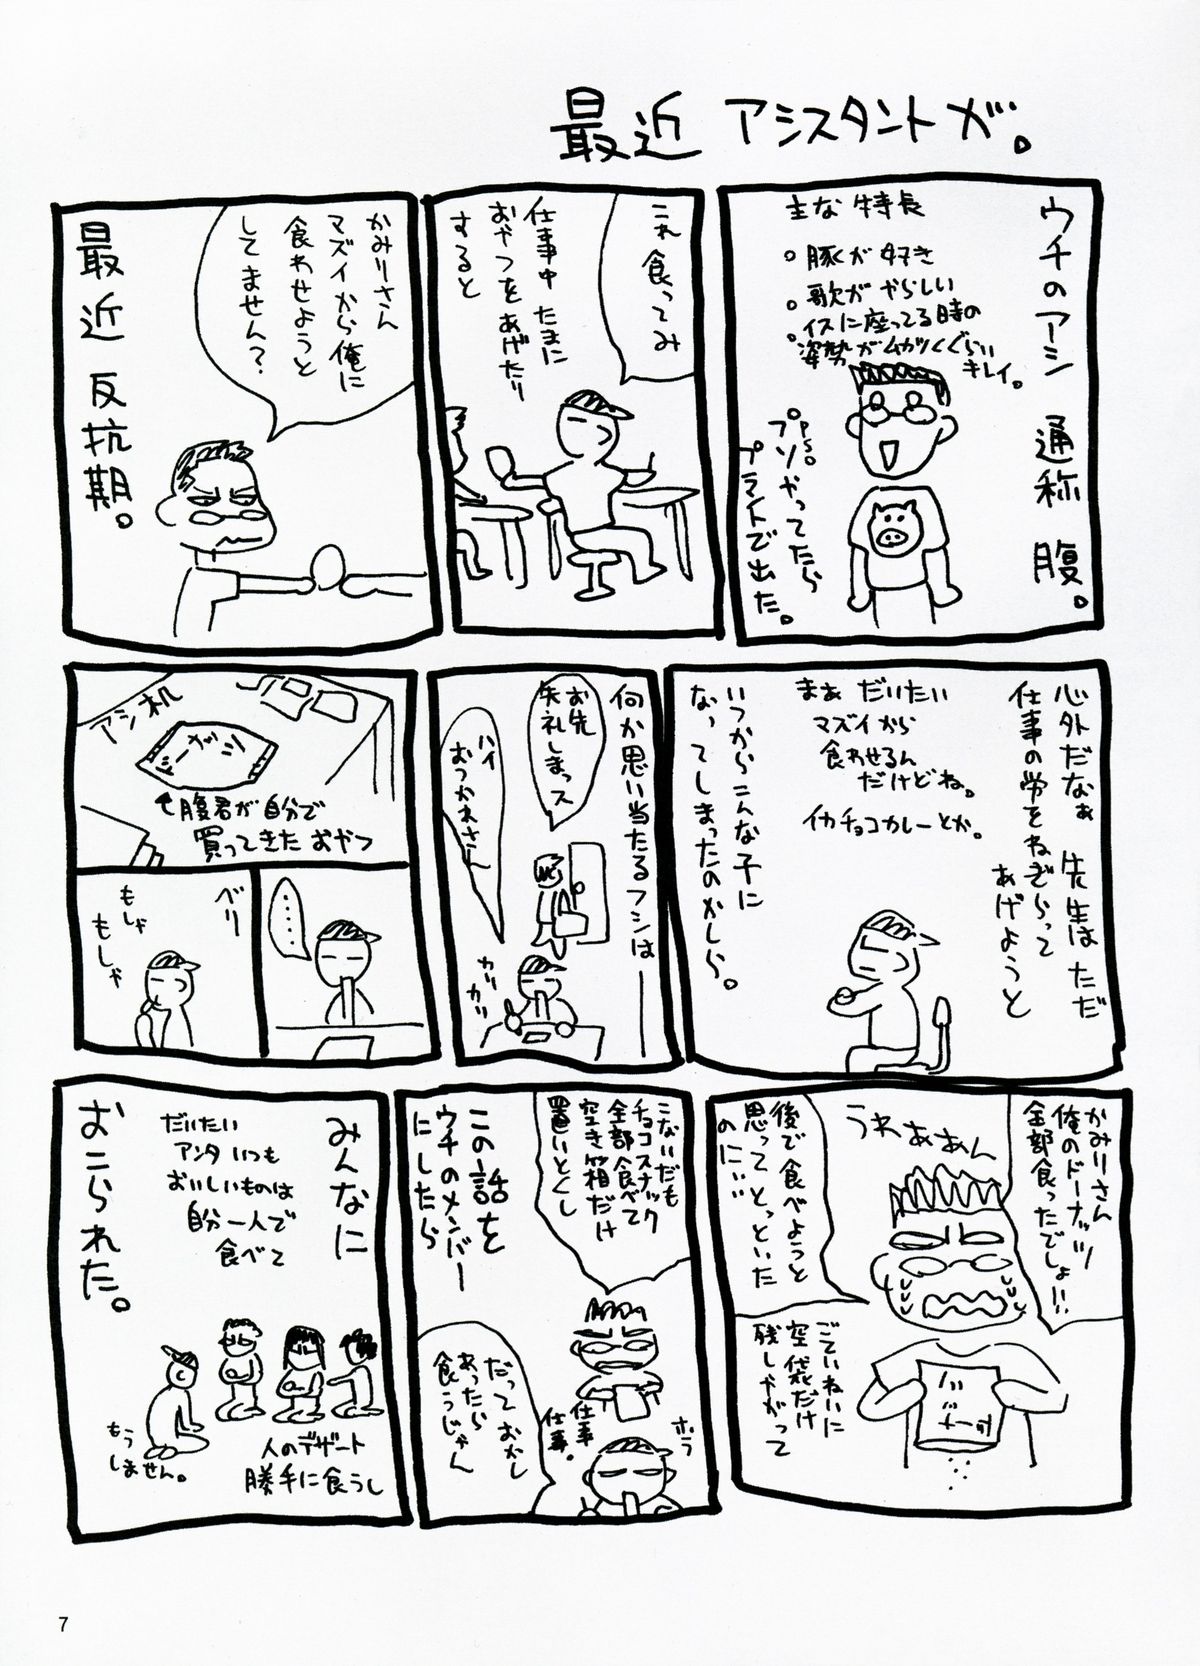 最近 アシスタントが。
ウチのアシ 通称 腹。
主な特長
。豚くが好き
。歌がやらしい
。イスに座ってる時の
姿勢がムカツくぐらい
キレイ。
プソやってたら
プライトで出た。
これ食ってみ
仕事中 たまに
おやつをあげたり
すると
かみりさん
マズイから俺に
食わせようと
してません?
最近 反抗期。
心外だなぁ 先生は ただ
仕事の労をねぎらって
あげようと
まぁ だいたい
マズイから
食わせるん
だけどね。
イカチョコカレーとか。
いつからこんな子に
なってしまったのかしら。
何か思い当たるフシは――
お先
失礼しまっス
ハイ
おつかれさん
カリ
カリ
アシ机
腹君が自分で
買ってきた おやつ
……
ベリ
もしゃ
もしゃ
かみりさん
俺のドーナッツ
全部食ったでしょ!!
うわぁぁん
後で食べようと
思って とっといた
のに…
ごていねいに
空袋だけ
残しやがって
こないだも
チョコスナック
全部食べて
空き箱だけ
置いとくし
この話を
ウチのメンバー
にしたら
ホラ
仕事
仕事。
だって おかし
あったら
食うじゃん
みんなに
だいたい
アンタ いつも
おいしいものは
自分一人で
食べて
おこられた。
人のデザート
勝手に食うし
もう
しません。
7